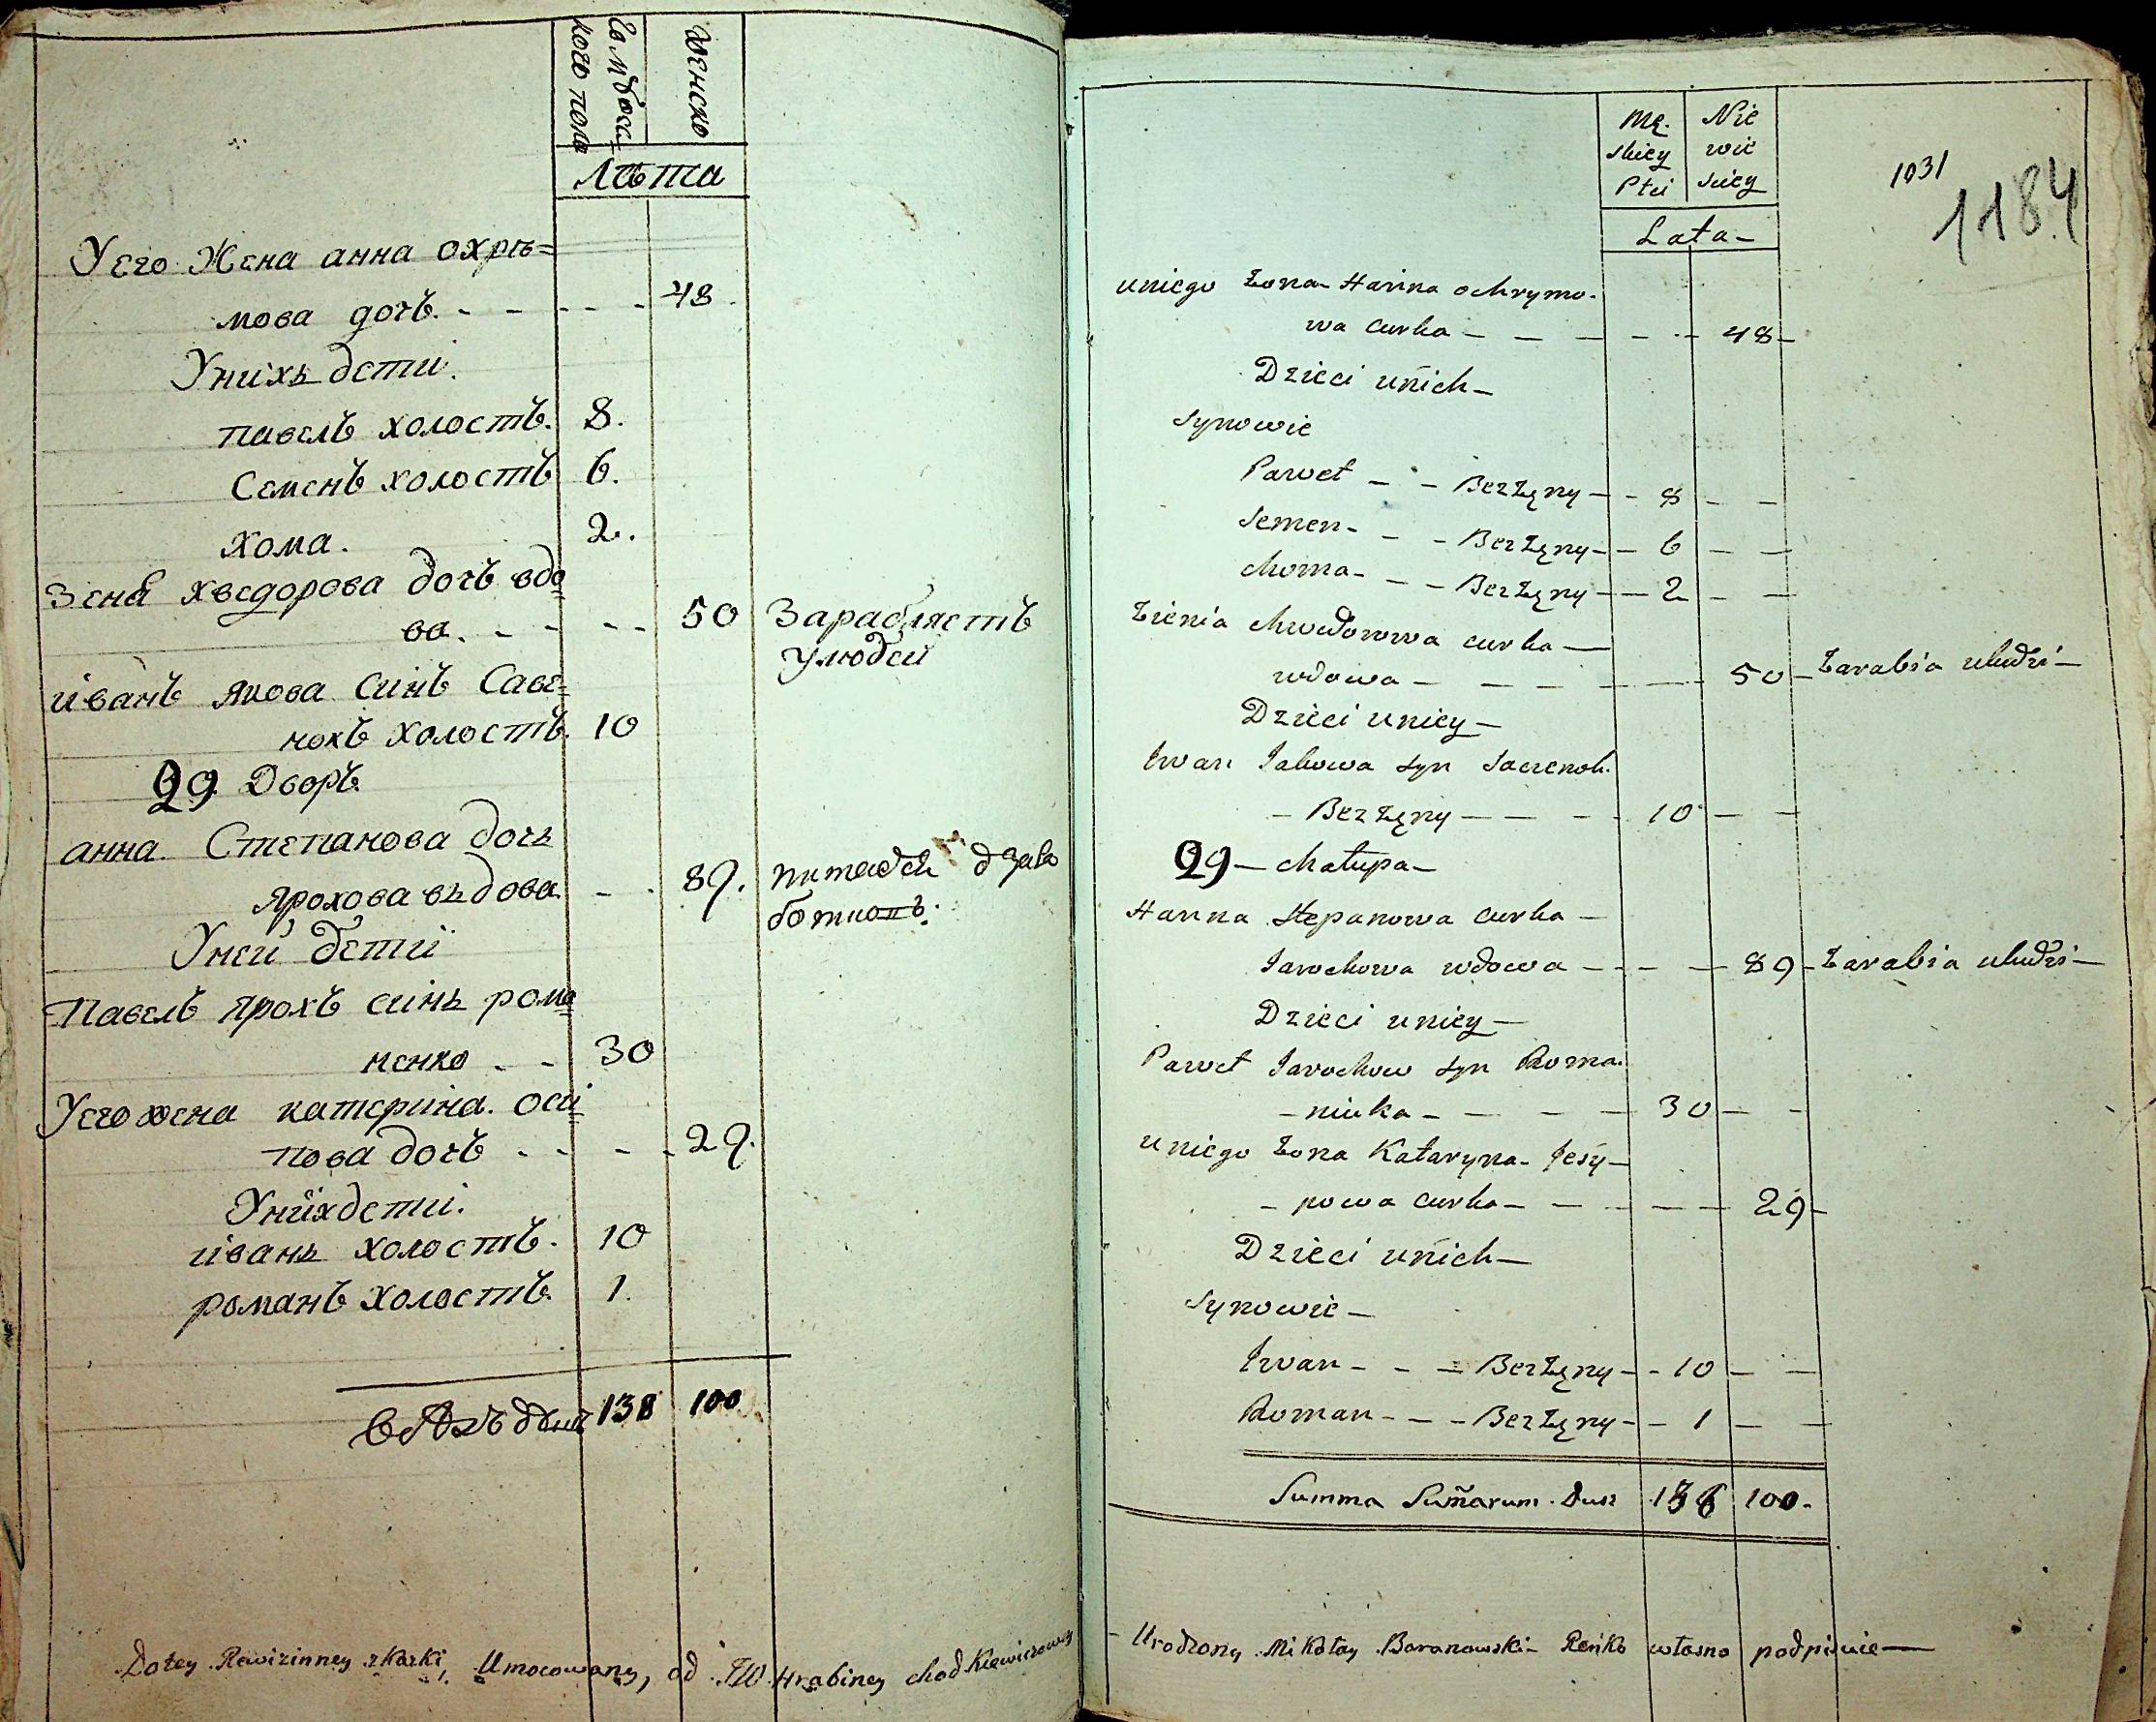 женско
Лѣта
Уего Жена анна охръ=
мова дочъ. - - - - - 48.
Унихъ дети.
павелъ холостъ. 8.
Семенъ холостъ 6.
Хома. 2.
Зеня хведорова дочъ вдо=
ва. - - - - 50 Зарабляетъ
улюдей
иванъ якова синъ Саве=
нокъ холостъ. 10
29 Дворъ.
анна Степанова дочь
ярохова въдова. - - 89.
Уней дети
Павелъ ярохъ синъ рома=
ненко - - 30
Уего жена катерина оси=
пова дочъ - - - - 29.
Унихдети.
иванъ холостъ. 10
романъ холостъ. 1.
138 100
Dotey Rewizinney skazki, Umocowany, od JW Hrabiney chodkiewiczowey
Mę. Nie
skiey wie
Płci sciey
Lata-
1031
1184
uniego żona Hanna ochrymo-
wa curka - - - - - 48-
Dzieci unich-
synowie
Paweł - - Bezżęny - - 8 - -
Semen - - - Bezżęny - - 6 - -
choma - - - Bezżęny - - 2 - -
Zienia chwedorowa curka -
wdowa - - - - - - 50 - Zarabia uludzi -
Dzieci uniey -
Iwan Jakowa syn Sawenok.
- Bezżęny - - - - 10 - -
29 - chałupa -
Hanna Stepanowa curka -
Jarochowa wdowa - - - 89 - Zarabia uludzi -
Dzieci uniey -
Paweł Jarochow syn Roma.
- niuka - - - - 30 - -
uniego żona Kataryna Jesy -
- powa curka - - - - - 29 -
Dzieci unich -
synowie -
Iwan - - - Bezżęny - - 10 - -
Roman - - - Bezżęny - - 1 - -
Summa Sum̃arum Dusz 136 100.
- Urodzony Mikołay Baranowski - Renko własno podpisuie -